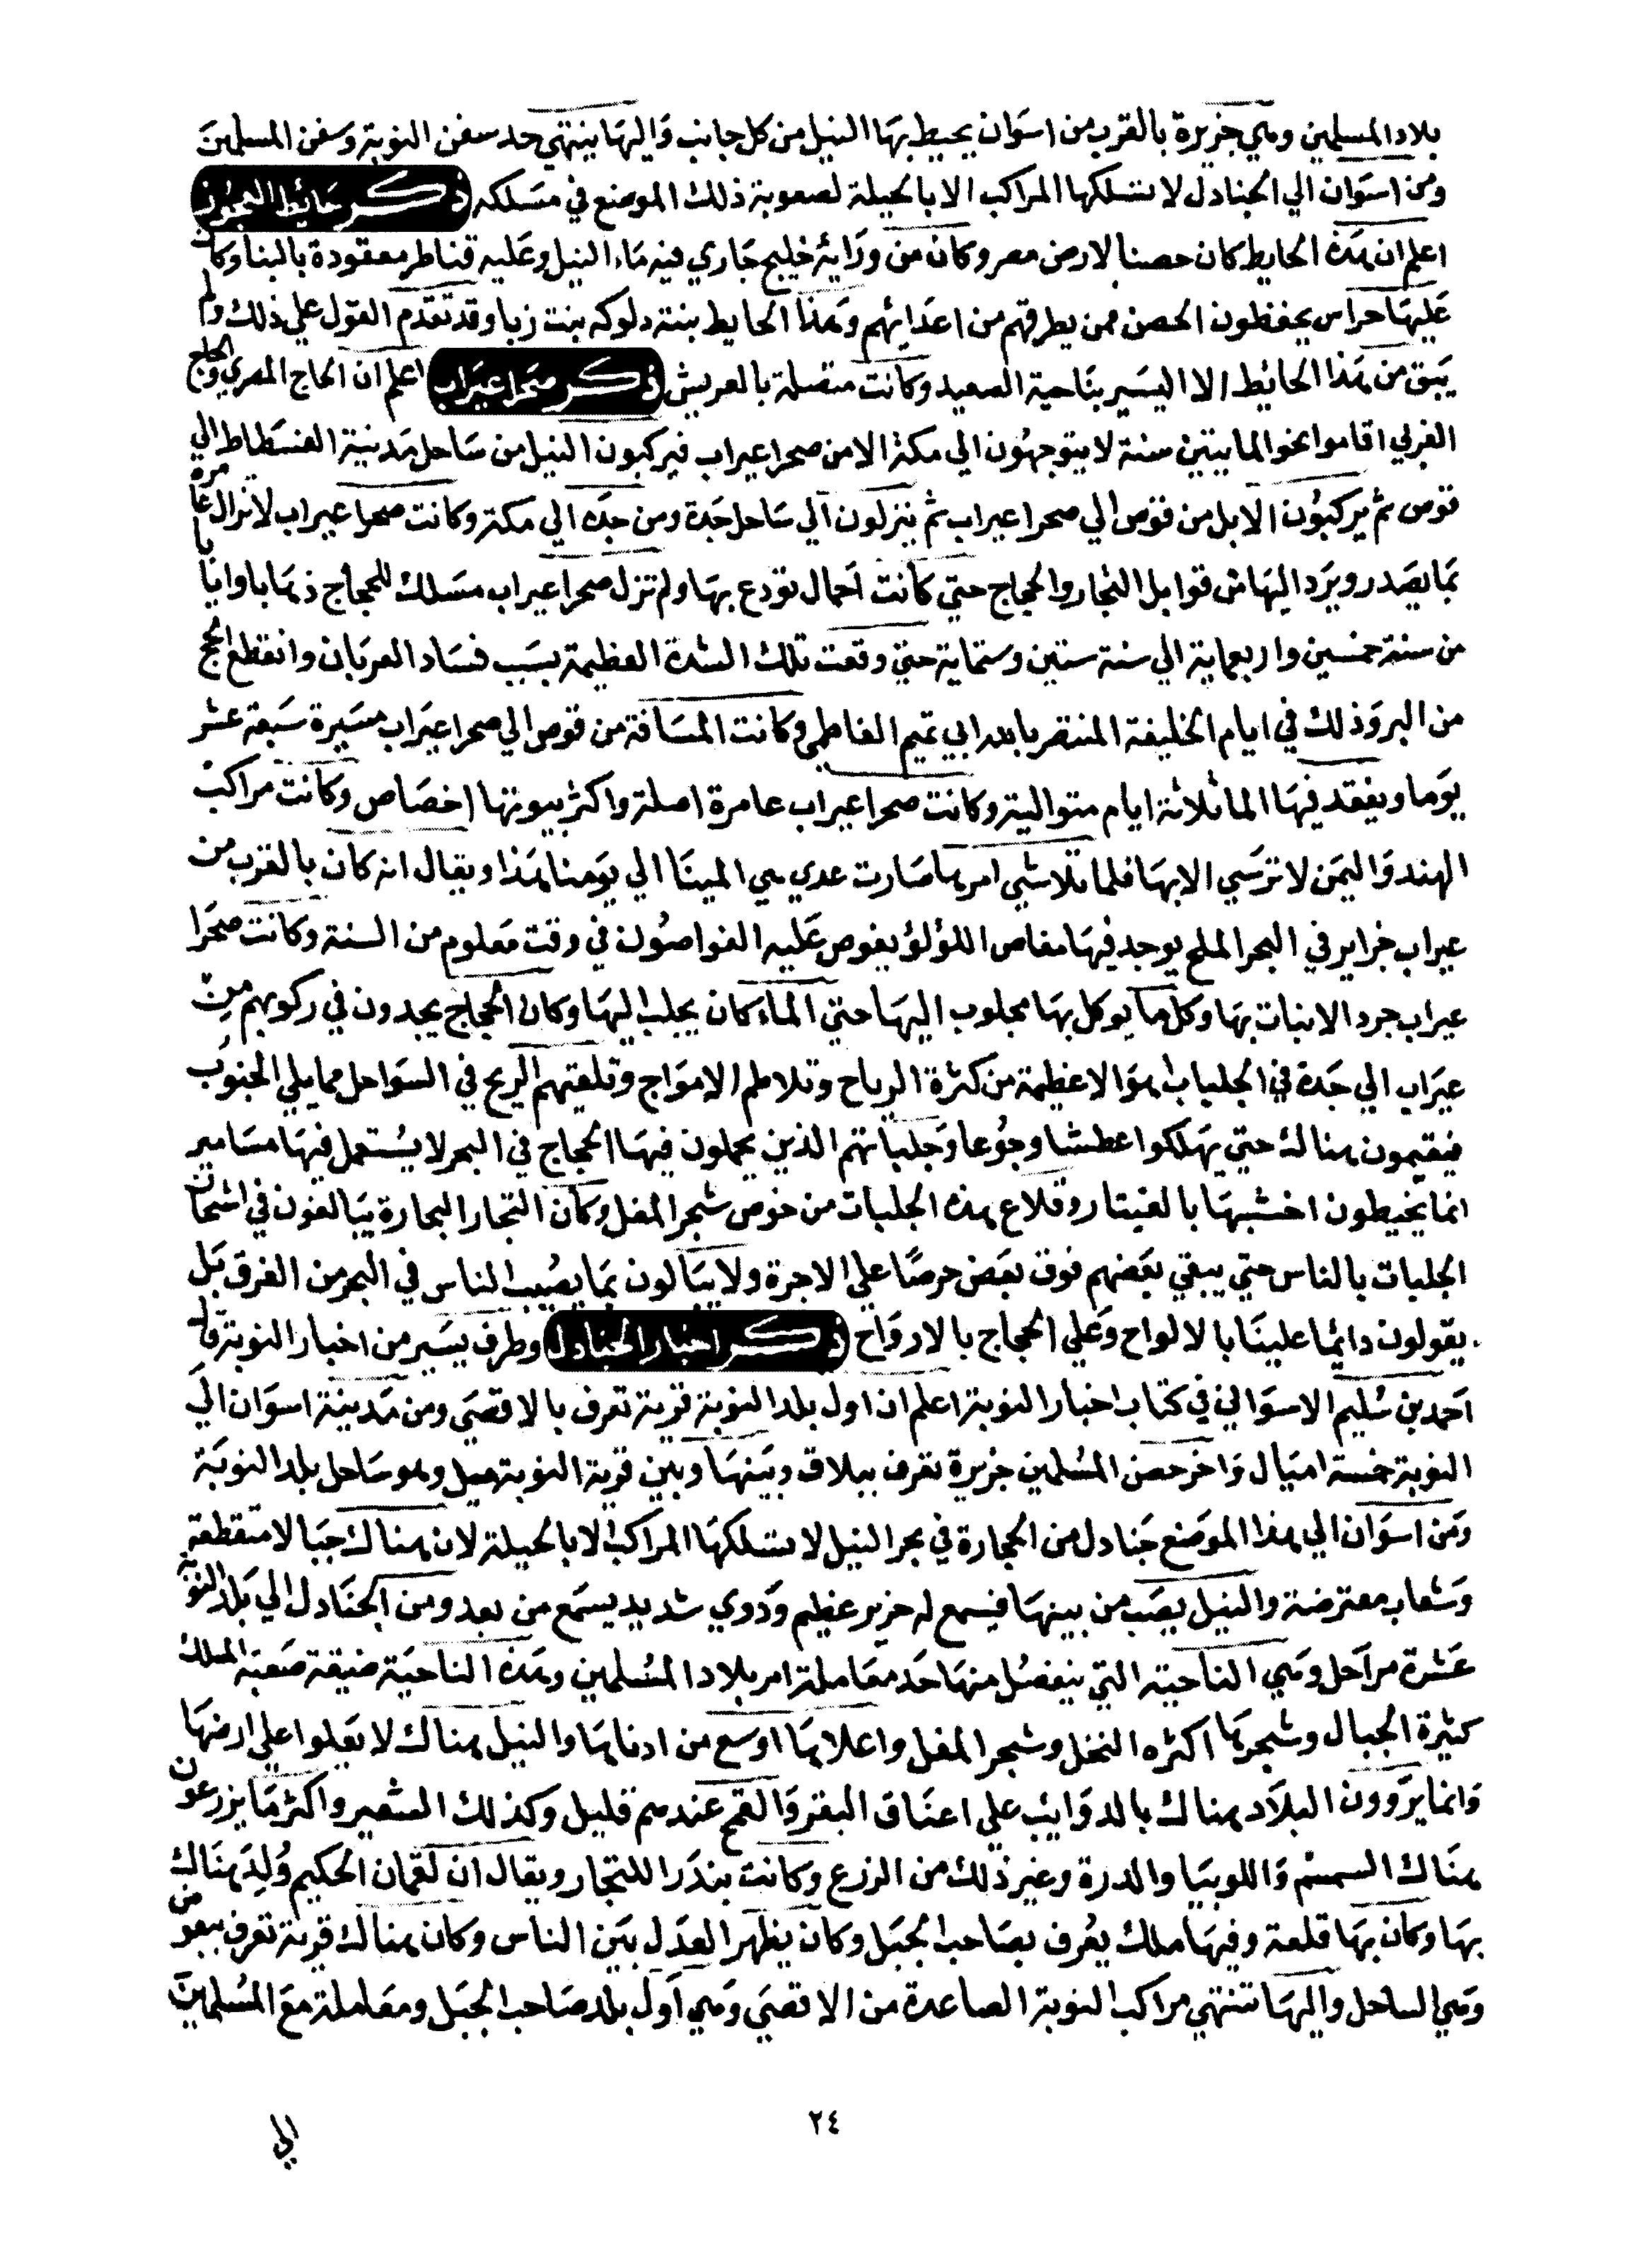 بلاد المسلمين وهي جزيرة بالقرب من اسوان يحيط بها النيل من كل جانب واليها ينتهي حد سفن النوبة وسفن المسلمين
ومن اسوان الي الجنادل لا تسلكها المراكب الا بالحيلة لصعوبة ذلك الموضع في مسلكه ذكر حائط العجوز
اعلم ان هذه الحايط كان حصنا لارض مصر وكان من ورايه خليج جاري فيه ماء النيل وعليه قناطر معقودة بالبنا وكان
عليها حراس يحفظون الحصن ممن يطرقهم من اعدائهم وهذا الحايط بنته دلوكه بنت زبا وقد تقدم القول علي ذلك ولم
يبق من هذا الحائط الا اليسير بناحية الصعيد وكانت متصلة بالعريش ذكر صحرا عيراب اعلم ان الحاج المصري والحاج
الغربي اقاموا نحوا لمايتين سنة لا يتوجهون الي مكة الا من صحرا عيراب فيركبون النيل من ساحل مدينة الفسطاط الي
قوص ثم يركبون الابل من قوص الي صحرا عيراب ثم ينزلون الي ساحل جدة ومن جده الي مكة وكانت صحرا عيراب لا تزال عامرة
بما يصدر ويرد اليها من قوابل التجار والحجاج حتي كانت احمال تودع بها ولم تزل صحرا عيراب مسلك للحجاج ذهابا وايابا
من سنة خمسين واربعماية الي سنة ستين وستماية حتي وقعت تلك الشدة العظيمة بسبب فساد العربان وانقطع الحج
من البر وذلك في ايام الخليفة المنتصر بالله ابي تميم الفاطمي وكانت المسافة من قوص الي صحرا عيراب مسيرة سبعة عشر
يوما ويفقد فيها الما ثلاثة ايام متوالية وكانت صحرا عيراب عامرة اصلة واكثر بيوتها اخصاص وكانت مراكب
الهند واليمن لا ترسي الا بها فلما تلاشي امرها صارت عدي هي المينا الي يومنا هذا ويقال انه كان بالقرب من
عيراب جزاير في البحر الملح يوجد فيها مغاص اللؤلؤ يغوص عليه الغواصون في وقت معلوم من السنة وكانت صحرا
عيراب جرد الا نبات بها وكل ما يوكل بها مجلوب اليها حتي الماء كان يجلب اليها وكان الحجاج يجدون في ركوبهم من
عيراب الي جدة في الجلباب هوالا عظيمة من كثرة الرياح وتلاطم الامواج وتلقيهم الريح في السواحل مما يلي الجنوب
فيقيمون هناك حتي يهلكوا عطشا وجوعا وجلباتهم الذين يحملون فيها الحجاج في البحر لا يستعمل فيها مسامير
انما يخيطون اخشبها بالقيتار وقلاع هذه الجلبات من خوص شجر المقل وكان التجار البحارة يبالغون في اشحان
الجلبات بالناس حتي يبقي بعضهم فوق بعض حرصا علي الاجرة ولا يبالون بما يصيب الناس في البحر من الغرق بل
يقولون دائما علينا بالالواح وعلي الحجاج بالارواح ذكر اخبار الجنادل وطرف يسير من اخبار النوبة قال
احمد بن سليم الاسوالي في كتاب اخبار النوبة اعلم ان اول بلد النوبة قرية تعرف بالاقصي ومن مدينة اسوان الي
النوبة خمسة اميال واخر حصن المسلمين جزيرة تعرف ببلاق وبينها وبين قرية النوبة ميل وهو ساحل بلد النوبة
ومن اسوان الي هذا الموضع جنادل من الحجارة في بحر النيل لا تسلكها المراكب الا بالحيلة لان هناك جبالا متقطعة
وشعاب معترضة والنيل يصب من بينها فيسمع له خرير عظيم ودوي شديد يسمع من بعد ومن الجنادل الي بلد النوبة
عشرة مراحل وهي الناحية التي ينفصل منها حد معاملة امر بلاد المسلمين وهذه الناحية ضيقة صعبة المسلك
كثيرة الجبال وشجرها اكثره النخل وشجر المقل واعلاها اوسع من ادناها والنيل هناك لا يعلوا علي ارضها
وانما يزوون البلاد هناك بالدواليب علي اعناق البقر والقمح عندهم قليل وكذلك الشعير واكثر ما يزرعون
هناك السمسم واللوبيا والدرة وغير ذلك من الزرع وكانت بندرا للتجار ويقال ان لقمان الحكيم ولد هناك
بها وكان بها قلعة وفيها ملك يعرف بصاحب الجبل وكان يظهر العدل بين الناس وكان هناك قرية تعرف
وهي الساحل واليها تنتهي مراكب النوبة الصاعدة من الاقصي وهي اول بلد صاحب الجبل ومعاملة مع المسلمين
٢٤
الي